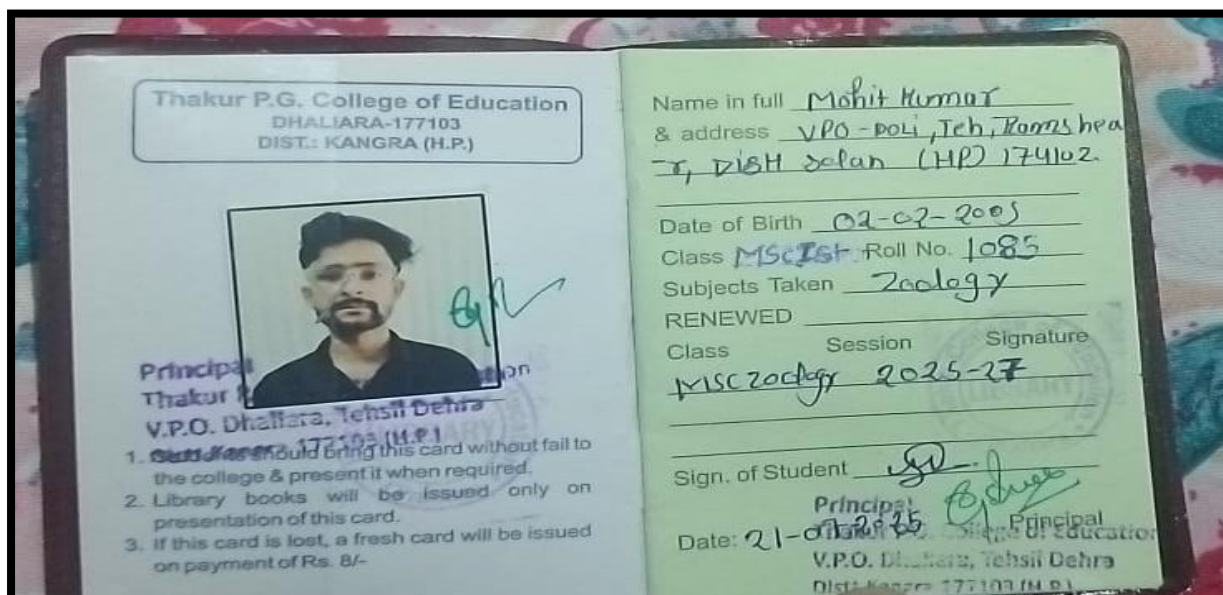 Thakur P.G. College of Education
DHALIARA-177103
DIST.: KANGRA (H.P.)
Principal
Thakur
V.P.O. Dhaliara, Tehsil Dehra
177103 (H.P.)
1. should bring this card without fail to
the college & present it when required.
2. Library books will be issued only on
presentation of this card.
3. If this card is lost, a fresh card will be issued
on payment of Rs. 8/-
Name in full Mohit Kumar
& address VPO-DOLI, Teh, Ramshea
-r, Distt Solan (HP) 174102.
Date of Birth 02-02-2005
Class MSc Ist Roll No. 1085
Subjects Taken Zoology
RENEWED
Class Session Signature
MSc zoology 2025-27
Sign. of Student
Principal
Principal
Date: 21-07-2025 College of Education
V.P.O. Dhaliara, Tehsil Dehra
Distt Kangra 177103 (H.P.)